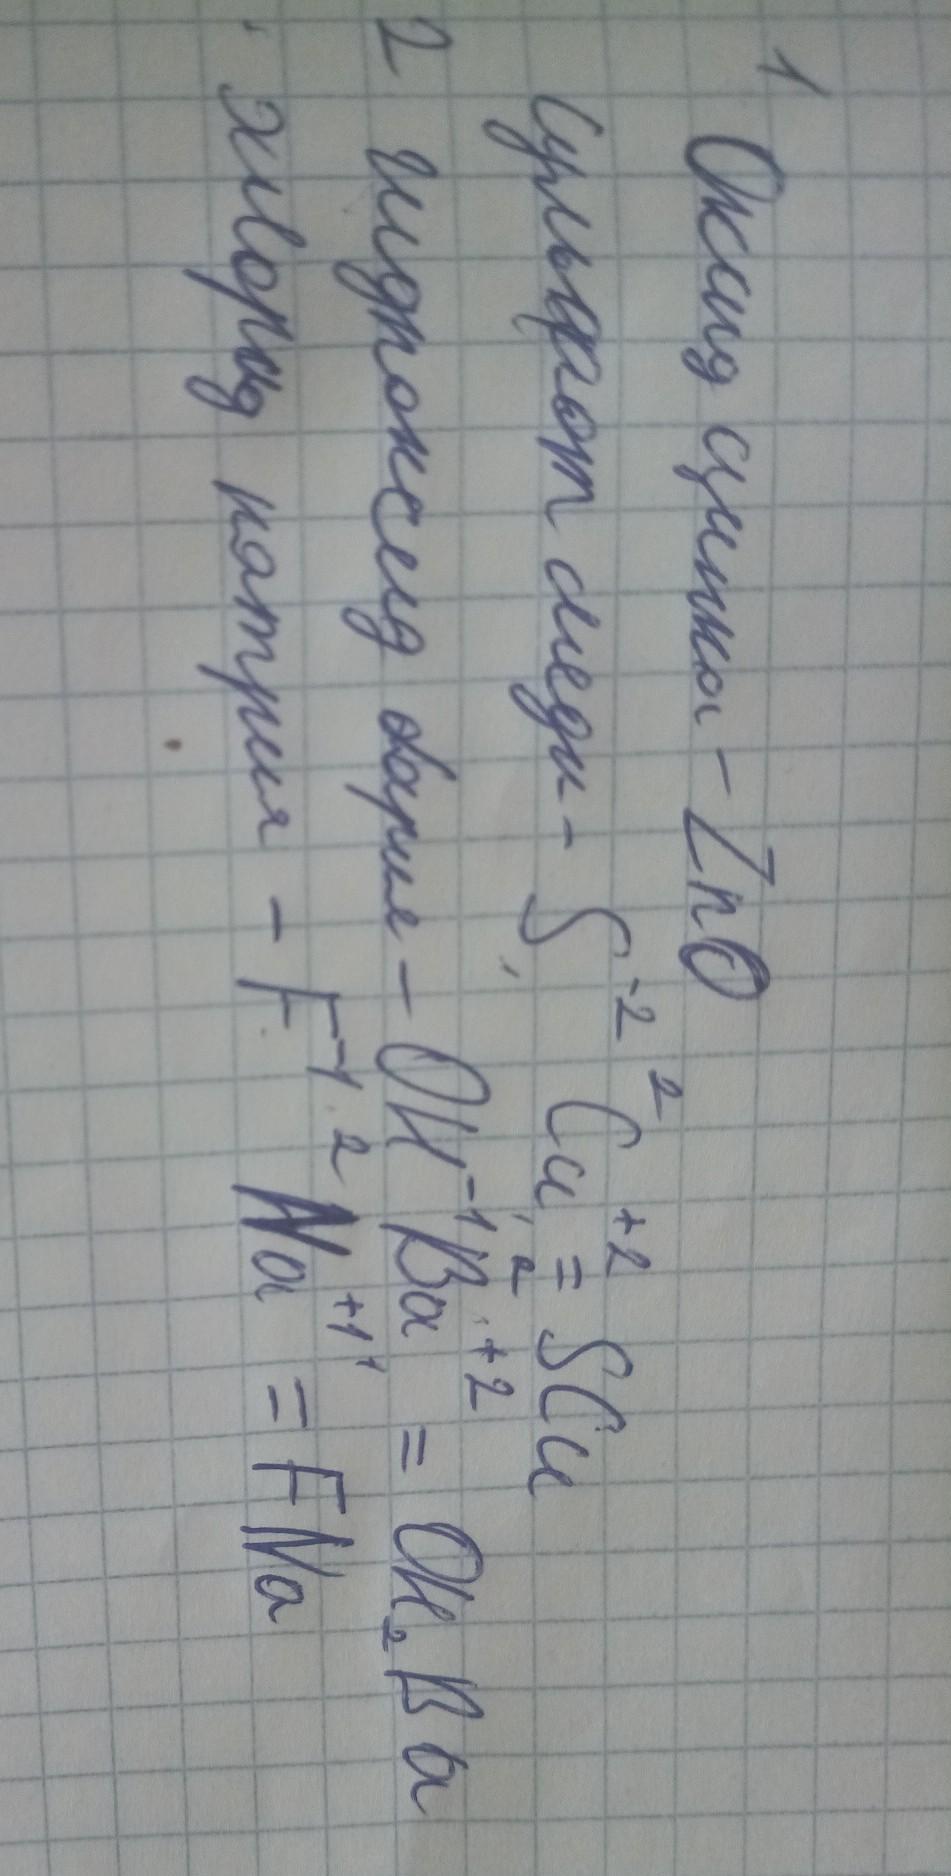 1 Оксид цинка - ZnO
Сульфат меди - S⁻² ² Cu⁺² = SCu
2 Гидроксид бария - OH⁻¹ ² Ba⁺² = OH₂Ba
Хлорид натрия - F⁻¹ ² Na⁺¹ = FNa